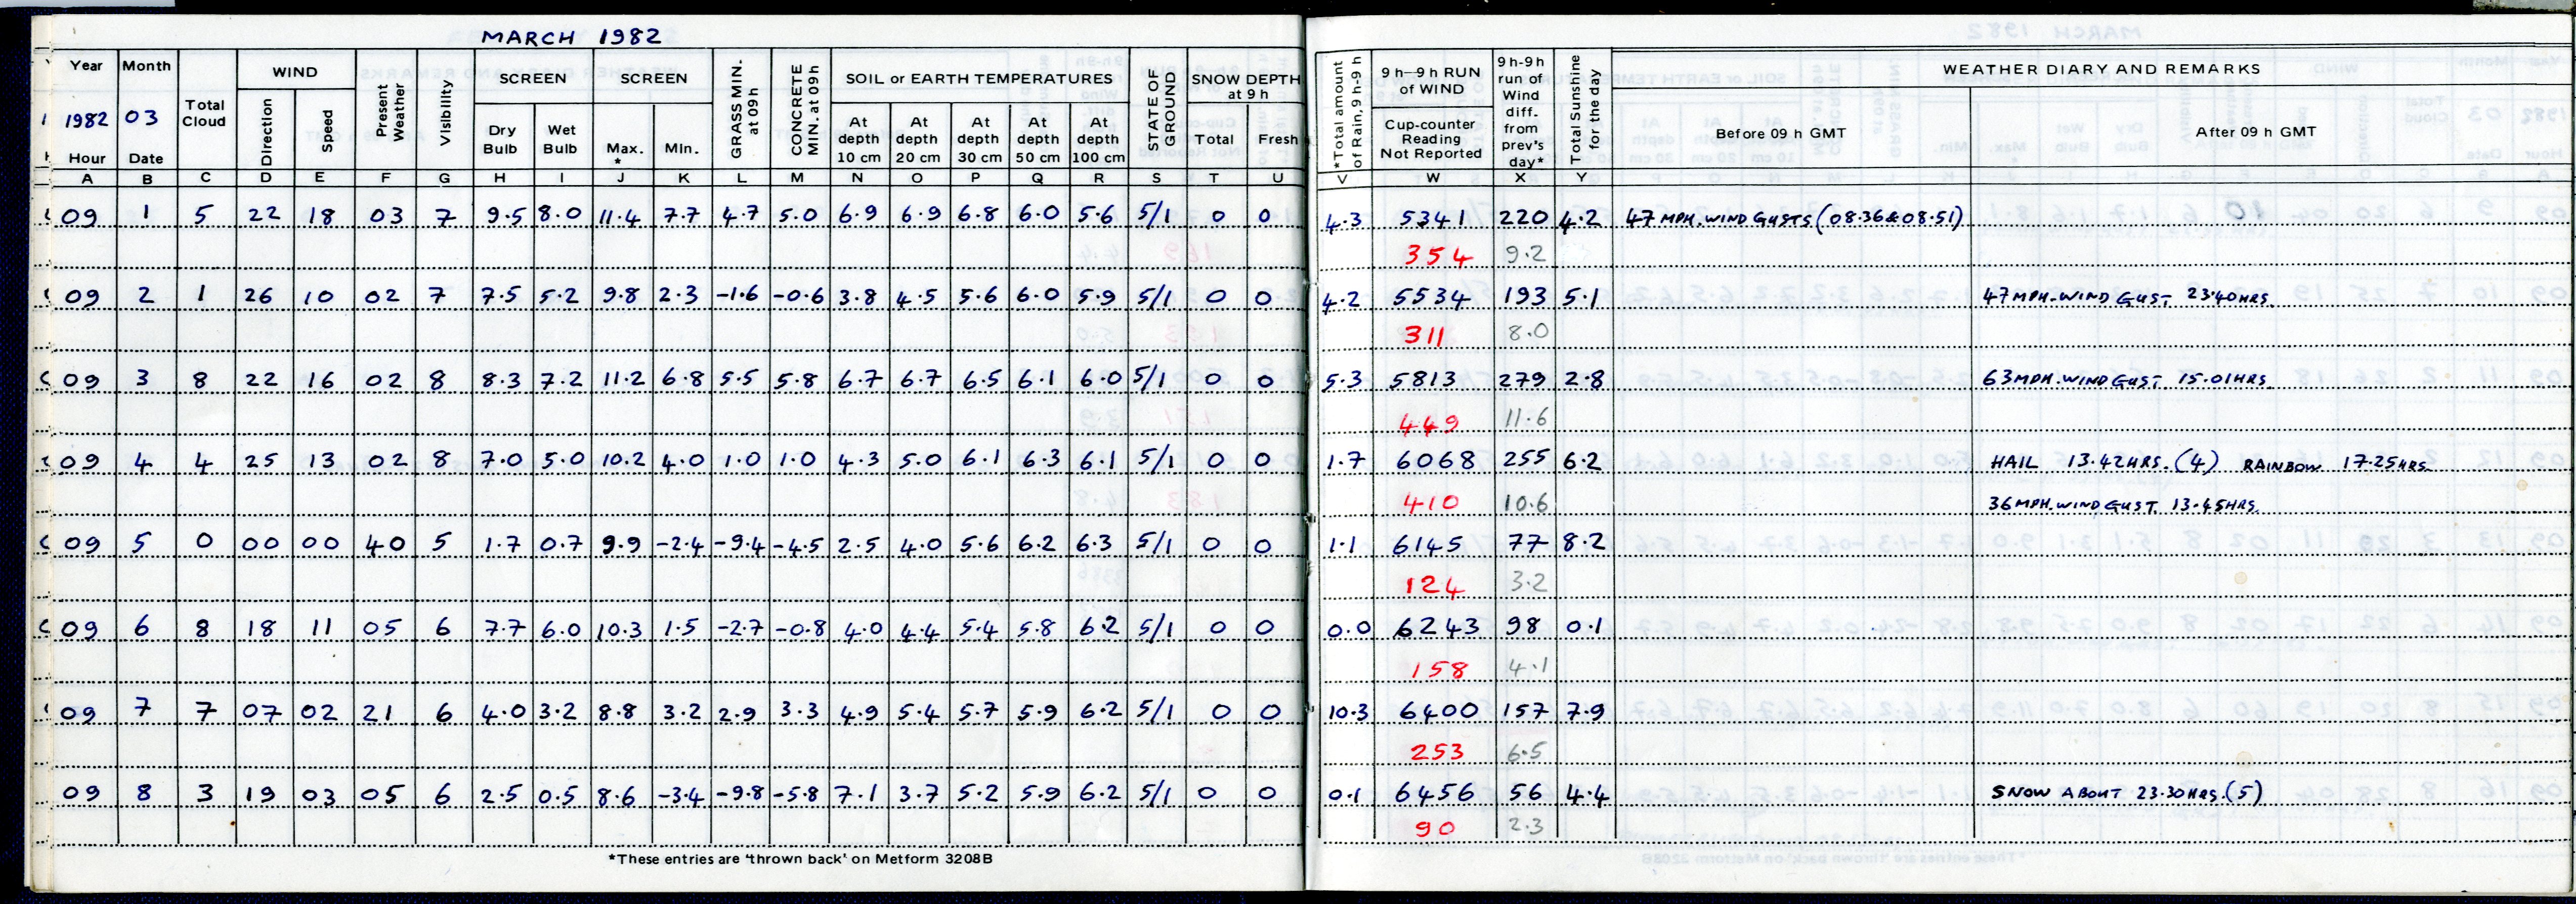 MARCH 1982
Year Month Total Cloud WIND Direction Speed Present Weather Visibility SCREEN Dry Bulb Wet Bulb SCREEN Max. * Min. GRASS MIN. at 09h CONCRETE MIN. at 09h SOIL or EARTH TEMPERATURES At depth 10 cm At depth 20 cm At depth 30 cm At depth 50 cm At depth 100 cm STATE OF GROUND SNOW DEPTH at 9 h Total Fresh *Total amount of Rain, 9 h-9 h 9 h—9 h RUN of WIND Cup-counter Reading Not Reported 9h-9h run of Wind diff. from prev's day* Total Sunshine for the day WEATHER DIARY AND REMARKS Before 09 h GMT After 09 h GMT
1982 03
Hour Date
A B C D E F G H I J K L M N O P Q R S T U V W X Y
09 1 5 22 18 03 7 9.5 8.0 11.4 7.7 4.7 5.0 6.9 6.9 6.8 6.0 5.6 5/1 0 0 4.3 5341 220 4.2 47 MPH. WIND GUSTS (08.36 & 08.51)
354 9.2
09 2 1 26 10 02 7 7.5 5.2 9.8 2.3 -1.6 -0.6 3.8 4.5 5.6 6.0 5.9 5/1 0 0 4.2 5534 193 5.1 47 MPH. WIND GUST 23.40 HRS.
311 8.0
09 3 8 22 16 02 8 8.3 7.2 11.2 6.8 5.5 5.8 6.7 6.7 6.5 6.1 6.0 5/1 0 0 5.3 5813 279 2.8 63 MPH. WIND GUST 15.01 HRS.
449 11.6
09 4 4 25 13 02 8 7.0 5.0 10.2 4.0 1.0 1.0 4.3 5.0 6.1 6.3 6.1 5/1 0 0 1.7 6068 255 6.2 HAIL 13.42 HRS. (4) RAINBOW 17.25 HRS.
410 10.6 36 MPH. WIND GUST 13.45 HRS.
09 5 0 00 00 40 5 1.7 0.7 9.9 -2.4 -9.4 -4.5 2.5 4.0 5.6 6.2 6.3 5/1 0 0 1.1 6145 77 8.2
124 3.2
09 6 8 18 11 05 6 7.7 6.0 10.3 1.5 -2.7 -0.8 4.0 4.4 5.4 5.8 6.2 5/1 0 0 0.0 6243 98 0.1
158 4.1
09 7 7 07 02 21 6 4.0 3.2 8.8 3.2 2.9 3.3 4.9 5.4 5.7 5.9 6.2 5/1 0 0 10.3 6400 157 7.9
253 6.5
09 8 3 19 03 05 6 2.5 0.5 8.6 -3.4 -9.8 -5.8 7.1 3.7 5.2 5.9 6.2 5/1 0 0 0.1 6456 56 4.4 SNOW ABOUT 23.30 HRS. (5)
90 2.3
*These entries are 'thrown back' on Metform 3208B